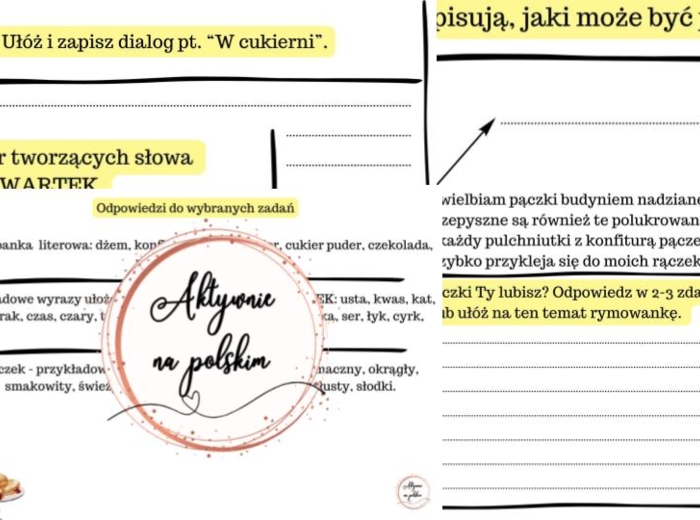 Ułóż i zapisz dialog pt. “W cukierni”.
r tworzących słowa
WARTEK
pisują, jaki może być
Odpowiedzi do wybranych zadań
banka literowa: dżem, cukier puder, czekolada,
adowe wyrazy EK: usta, kwas, kat,
rak, czas, czary, ser, łyk, cyrk,
czek - przykładow naczny, okrągły,
smakowity, śwież tłusty, słodki.
Aktywnie
na polskim
wielbiam pączki budyniem nadziane
zepyszne są również te polukrowan
każdy pulchniutki z konfiturą pącze
zybko przykleja się do moich rączek
czki Ty lubisz? Odpowiedz w 2-3 zda
ub ułóż na ten temat rymowankę.
Aktywnie
na polskim